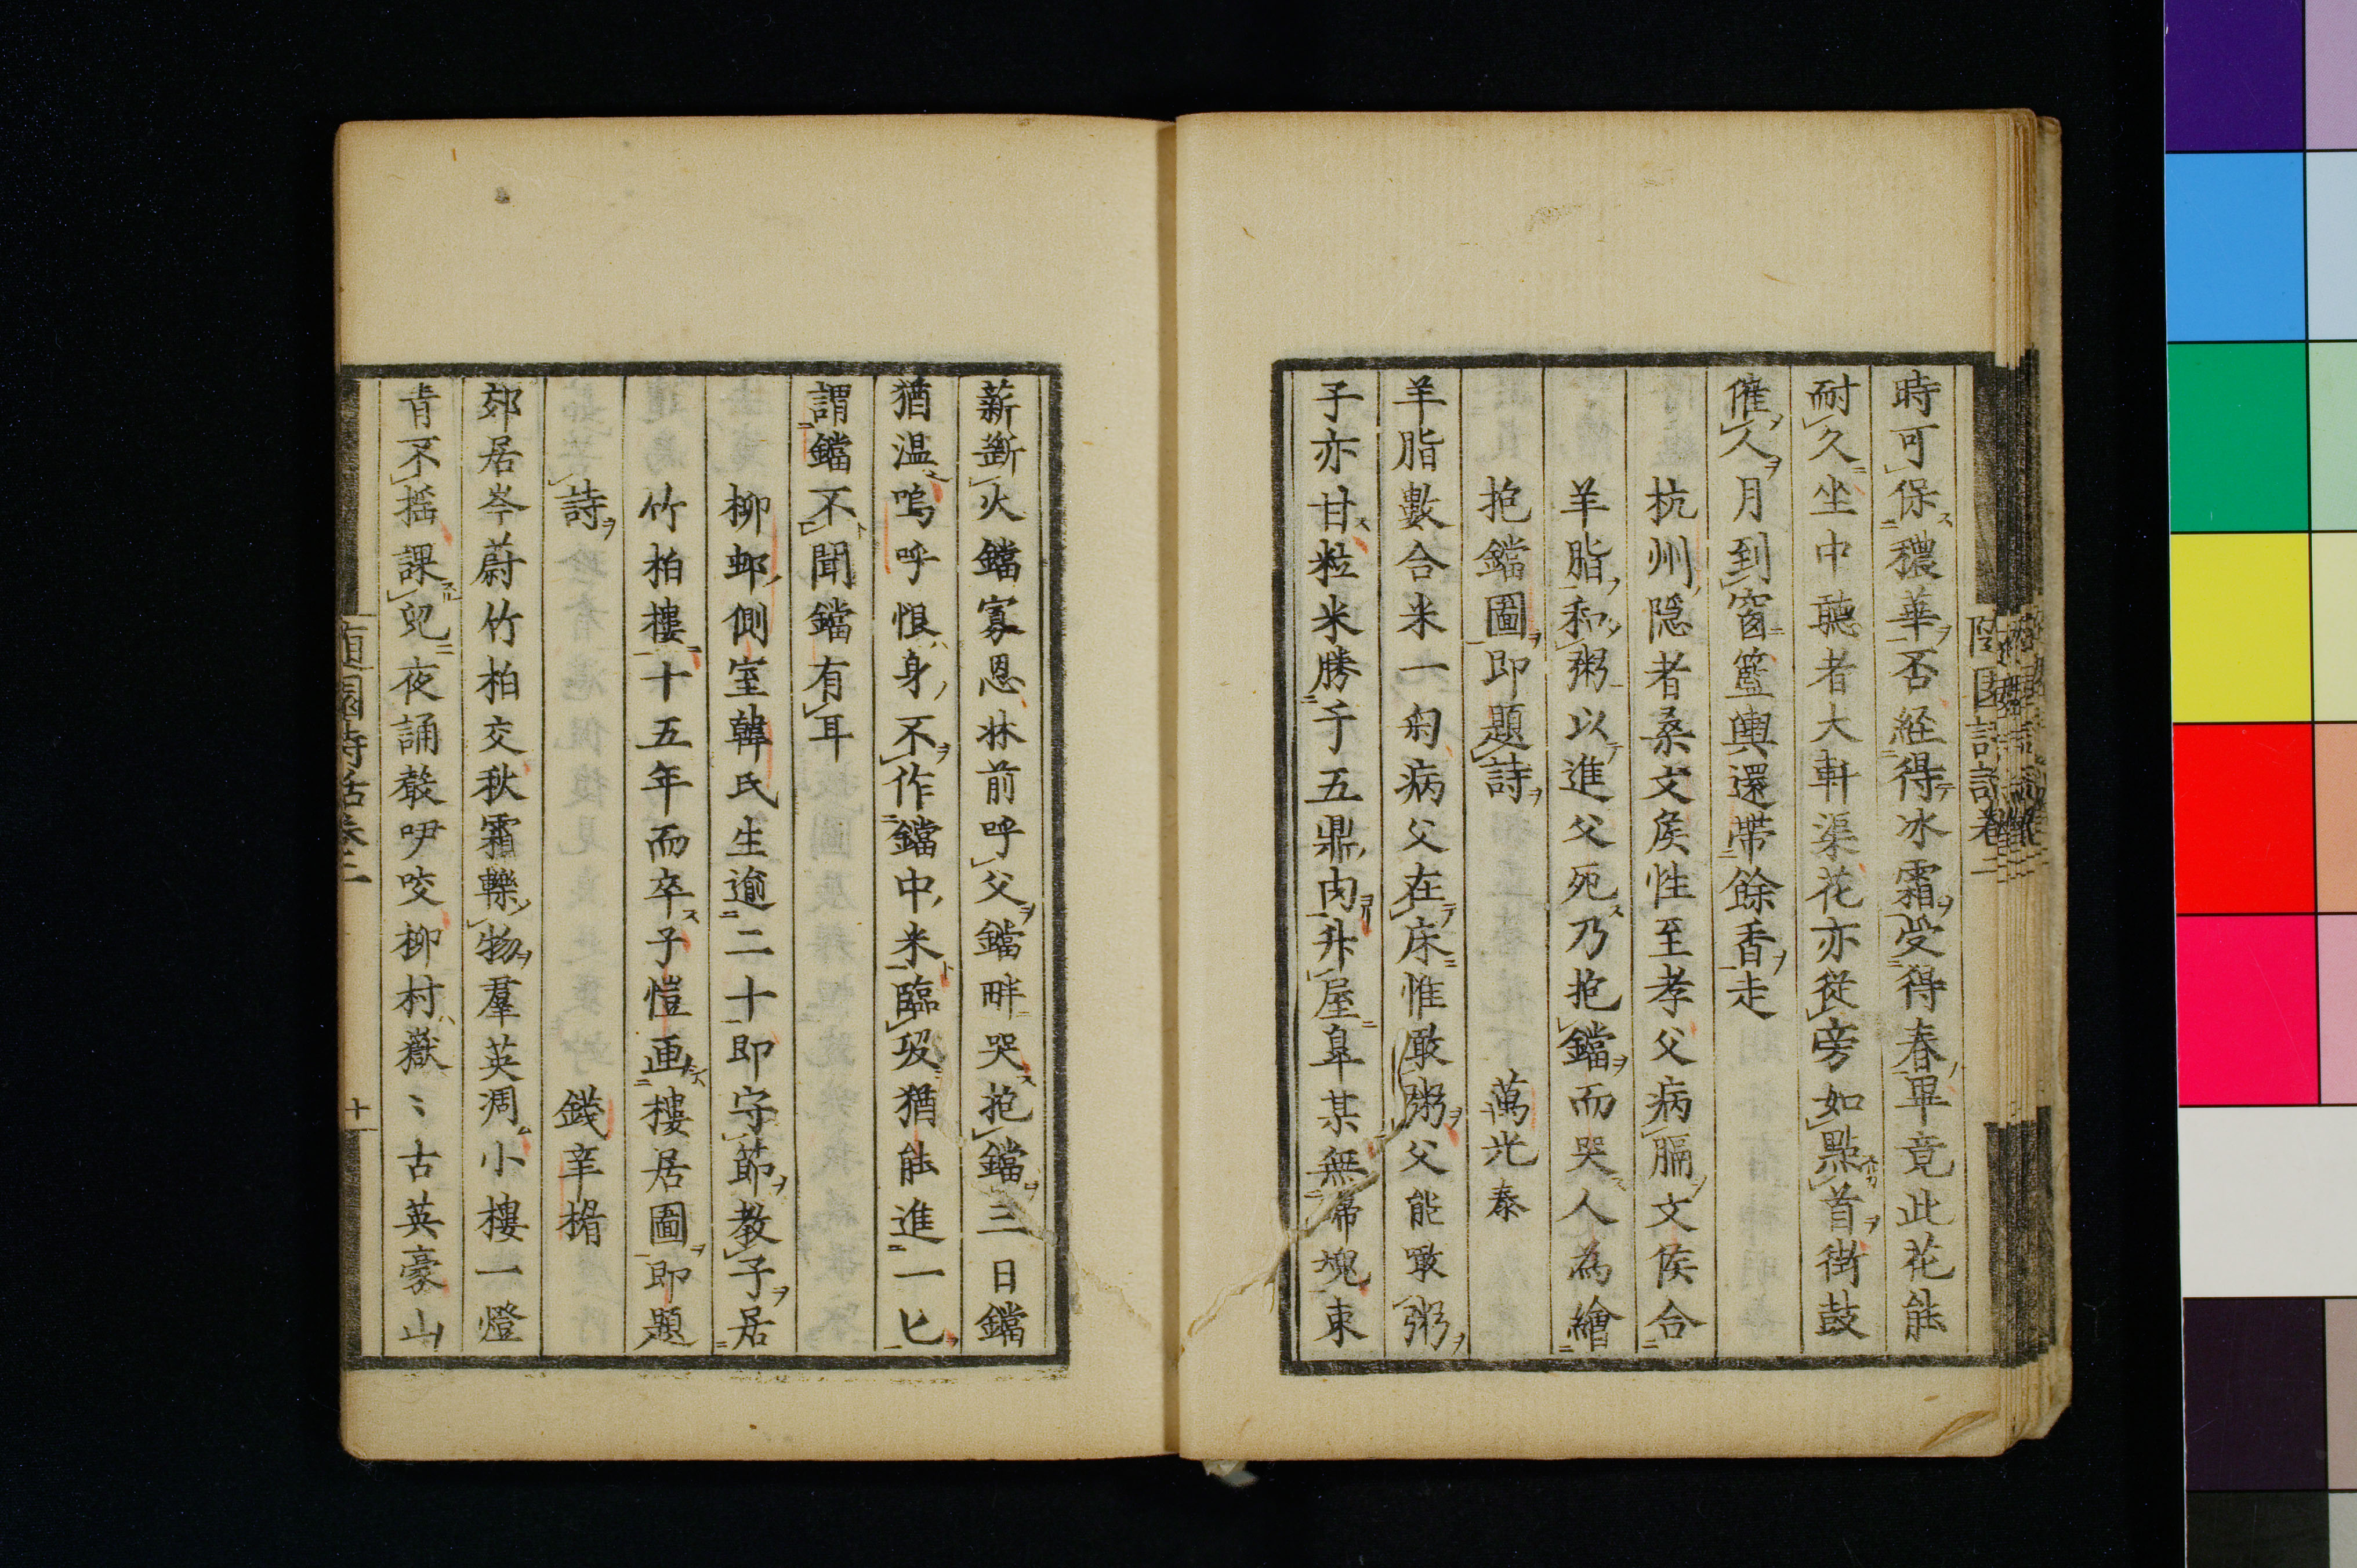 時可保穠華否経得冰霜受得春畢竟此花能
耐久坐中聽者大軒渠花亦従旁如點首街鼓
催人月到窗籃輿還帶餘香走
杭州隠者桑文矦性至孝父病膈文矦合
羊脂和粥以進父死乃抱鐺而哭人為繪
抱鐺圖即題詩 萬光泰
羊脂數合米一匊病父在床惟噉粥父能噉粥
子亦甘粒米勝于五鼎肉升屋皐某無帰魂束
薪断火鐺寡恩牀前呼父鐺畔哭抱鐺三日鐺
猶温嗚呼恨身不作鐺中米臨歿猶能進一匕
謂鐺不聞鐺有耳
柳邨側室韓氏生逾二十即守節教子居
竹柏樓十五年而卒子愷画樓居圖即題
詩 錢辛楣
郊居岑蔚竹柏交秋霜轢物羣英凋小樓一燈
青不揺課兒夜誦聲咿咬柳村嶽〻古英豪山
隨園詩話卷二
十